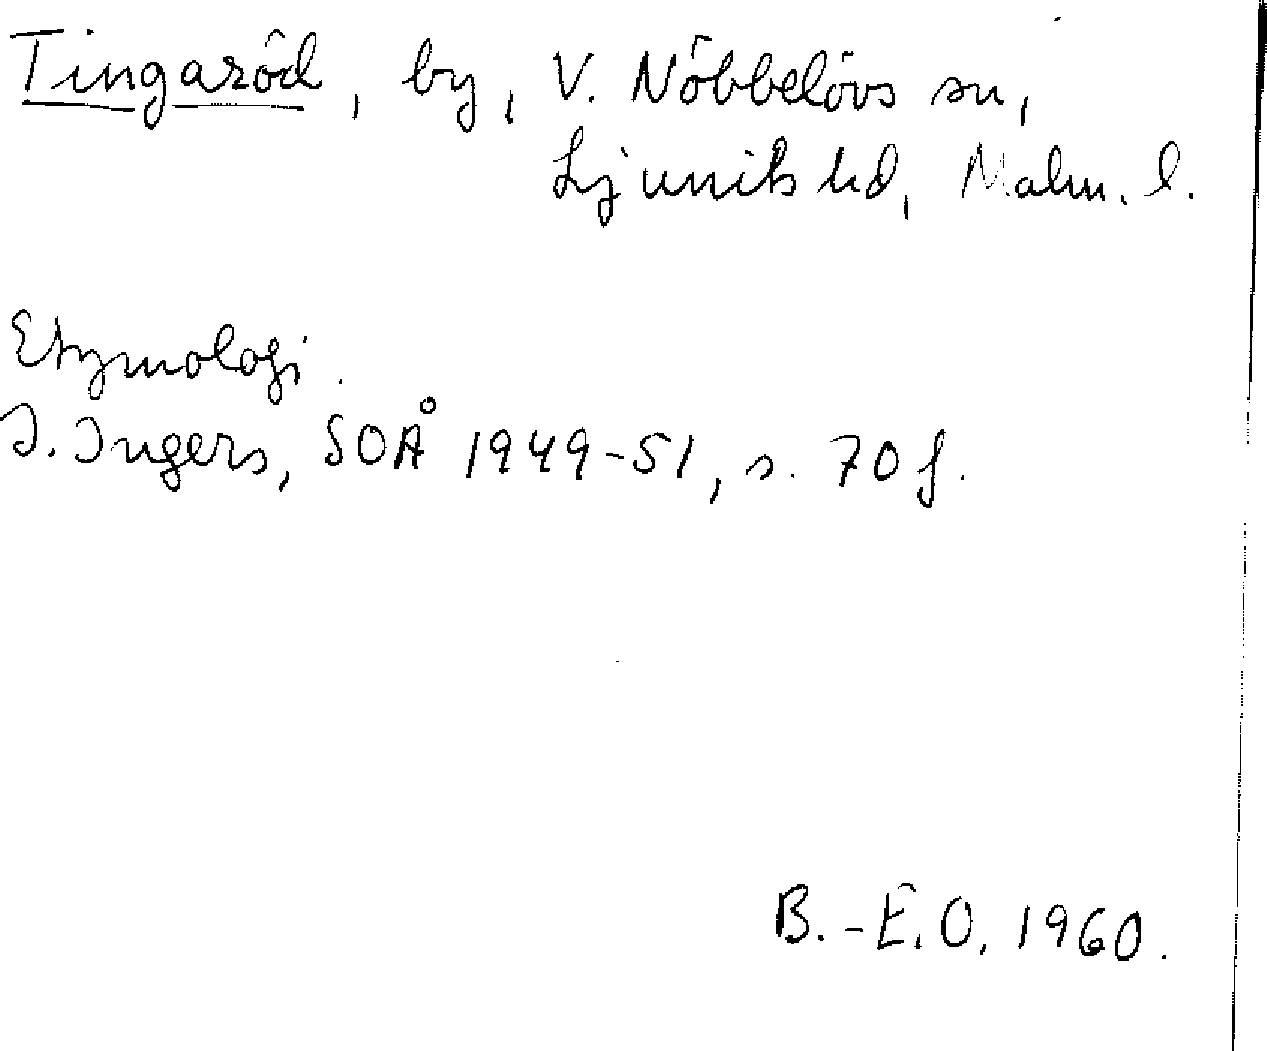 Tingaröd, by, V. Nöbbelövs sn,
Ljunits hd, Malm. l.
Etymologi.
I. Ingers, SOÅ 1949-51, s. 70 f.
B.-E.O. 1960.